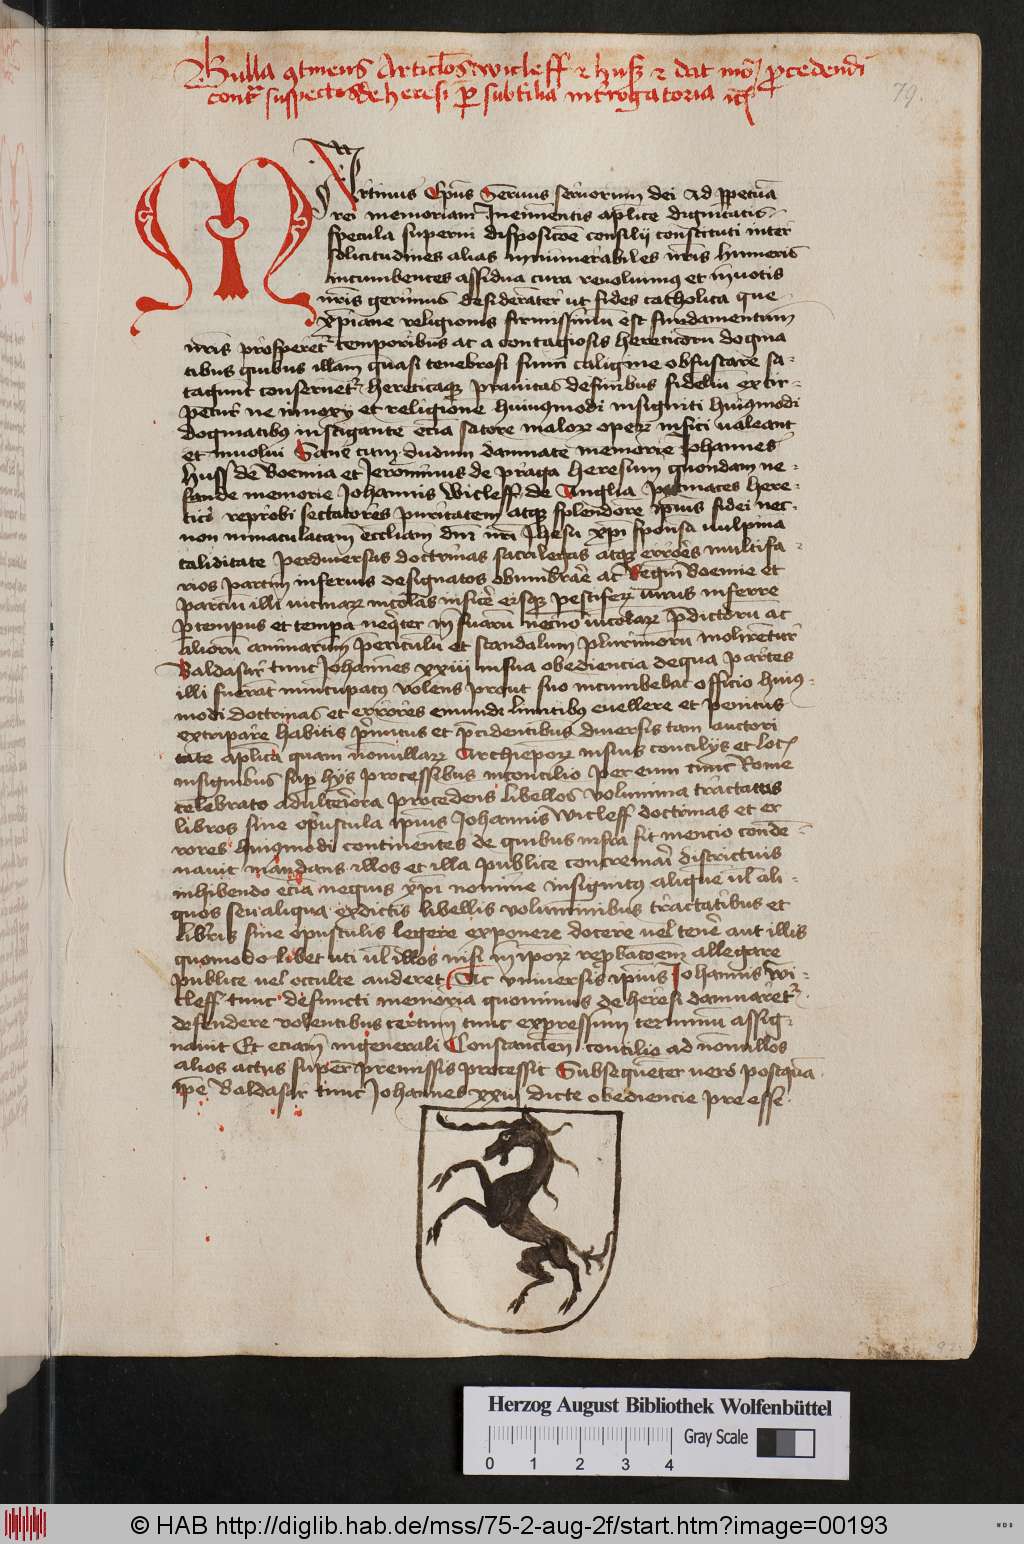 Bulla ꝯtinens Articlos wicleff ⁊ huß ⁊ dat modū pcedendi
contͣ suspectos de heresi p subtilia introgatoria ⁊c
79.
MArtinus Epūs Seruus seruorum dei Ad ppetuā
rei memoriam Ineminentis aplice dignitatis
specula superni disposicōe consilij constituti inter
solicitudines alias innumerabiles nr̄is humeris
incumbentes assidua cura reuoluimus et inuotis
nr̄is gerimus desideranter ut fides catholica que
xpiane religionis firmissimū est fundamentum
nr̄is prosperetᷣ temporibus ac a contagiosis hereticorū dogma
tibus quibus illam quasi tenebrosi fumi caligine obfuscare sa-
tagunt conseruetᷣ hereticaqꝫ prauitas definibus fideliū extir-
petur ne innoxij et religione huiusmodi insigniti huiusmodi
dogmatibꝰ instigante ecia satore maloꝝ opeꝝ infici ualeant
et inuolui Sane cum dudum damnate memorie Johannes
huss de Boemia et Jeronimus de praga heresum quondam ne-
fande memorie Johannis wicleff de Anglia ptinaces here-
tici reprobi sectatores puritatem atqꝫ splendore ipīus fidei nec
non inmaculatam eccliam dnī nr̄i Jhesu xp̄i sponsā uulpina
caliditate perdiuersas doctrinas sacrilegas atqꝫ errores multifa-
rios partim inferius designatos obumbrare ac Regnū Boemie et
parciū illi uicinaꝝ incolas inficere eisqꝫ pestiferꝝ uirus inferre
p tempus et tempa neqter in suarū necnō incolaꝝ pdictorū ac
aliorū animarum periculū et scandalum plurimorū molirētur
Baldasar tunc Johannes xxiii insua obediencia dequa partes
illi fuerāt nuncupatꝰ volens prout suo incumbebat officio huiꝰ-
modi doctrinas et errores emundi limitibꝰ euellere et penitus
extirpare habitis primitus et pcidentibus diuersis tam auctori
tate aplica quam nōnullaꝝ Archiepoꝝ insius concilijs et locꝭ
insignibus sup hijs processibus inconcilio per eum tunc Rome
celebrato adulteriora procedens libellos volumina tractatus
libros siue opuscula ipīus Johannis wicleff doctrinas et er
rores huiꝰmodi continentes de quibus infra fit mencio conde-
nauit mandans illos et illa publice concremari districtuis
inhibendo ecia nequis xp̄i nomine insignitꝰ alique ul ali-
quos seu aliqua exdictis libellis voluminibus tractatibus et
libris siue opusculis legere exponere docere uel tenē aut illis
quomodo libet uti ul illos nisi in ipoꝝ repbacōem allegare
publice uel occulte auderet Ac vniuersis ipīus Johannis wi-
cleff tunc defuncti memoria quominus de heresi damnaretᷣ
defendere volentibus certum tunc expressum terminū assig-
nauit Et eciam ingenerali Constancien̄ concilio ad nōnullos
alios actus super premissis processit Subsequēter uero postquā
ipē Baldasar tunc Johannes xxiij dicte obediencie preesse
Herzog August Bibliothek Wolfenbüttel
Gray Scale
0 1 2 3 4
© HAB http://diglib.hab.de/mss/75-2-aug-2f/start.htm?image=00193